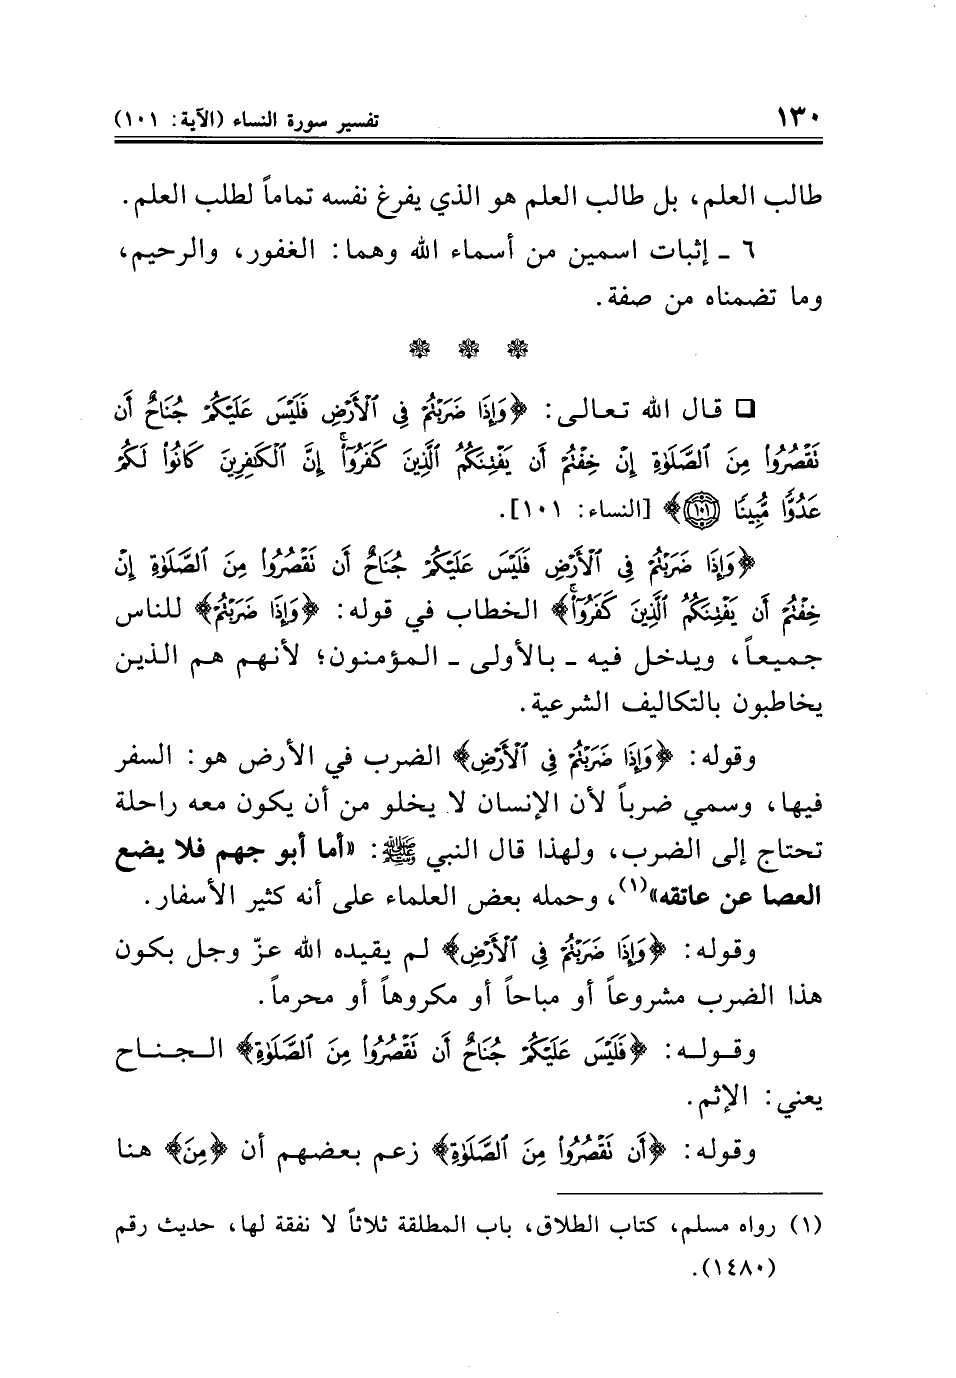 ١٣٠ تفسير سورة النساء (الآية: ١٠١)
طالب العلم، بل طالب العلم هو الذي يفرغ نفسه تماماً لطلب العلم.
٦ ـ إثبات اسمين من أسماء الله وهما: الغفور، والرحيم،
وما تضمناه من صفة.
❑ قال الله تعالى: ﴿وَإِذَا ضَرَبۡتُمۡ فِي ٱلۡأَرۡضِ فَلَيۡسَ عَلَيۡكُمۡ جُنَاحٌ أَن
تَقۡصُرُواْ مِنَ ٱلصَّلَوٰةِ إِنۡ خِفۡتُمۡ أَن يَفۡتِنَكُمُ ٱلَّذِينَ كَفَرُوٓاْۚ إِنَّ ٱلۡكَٰفِرِينَ كَانُواْ لَكُمۡ
عَدُوّٗا مُّبِينٗا ١٠١﴾ [النساء: ١٠١].
﴿وَإِذَا ضَرَبۡتُمۡ فِي ٱلۡأَرۡضِ فَلَيۡسَ عَلَيۡكُمۡ جُنَاحٌ أَن تَقۡصُرُواْ مِنَ ٱلصَّلَوٰةِ إِنۡ
خِفۡتُمۡ أَن يَفۡتِنَكُمُ ٱلَّذِينَ كَفَرُوٓاْۚ﴾ الخطاب في قوله: ﴿وَإِذَا ضَرَبۡتُمۡ﴾ للناس
جميعاً، ويدخل فيه ـ بالأولى ـ المؤمنون؛ لأنهم هم الذين
يخاطبون بالتكاليف الشرعية.
وقوله: ﴿وَإِذَا ضَرَبۡتُمۡ فِي ٱلۡأَرۡضِ﴾ الضرب في الأرض هو: السفر
فيها، وسمي ضرباً لأن الإنسان لا يخلو من أن يكون معه راحلة
تحتاج إلى الضرب، ولهذا قال النبي ﷺ: «أما أبو جهم فلا يضع
العصا عن عاتقه»(١)، وحمله بعض العلماء على أنه كثير الأسفار.
وقوله: ﴿وَإِذَا ضَرَبۡتُمۡ فِي ٱلۡأَرۡضِ﴾ لم يقيده الله عزّ وجل بكون
هذا الضرب مشروعاً أو مباحاً أو مكروهاً أو محرماً.
وقوله: ﴿فَلَيۡسَ عَلَيۡكُمۡ جُنَاحٌ أَن تَقۡصُرُواْ مِنَ ٱلصَّلَوٰةِ﴾ الجناح
يعني: الإثم.
وقوله: ﴿أَن تَقۡصُرُواْ مِنَ ٱلصَّلَوٰةِ﴾ زعم بعضهم أن ﴿مِنَ﴾ هنا
(١) رواه مسلم، كتاب الطلاق، باب المطلقة ثلاثاً لا نفقة لها، حديث رقم
(١٤٨٠).